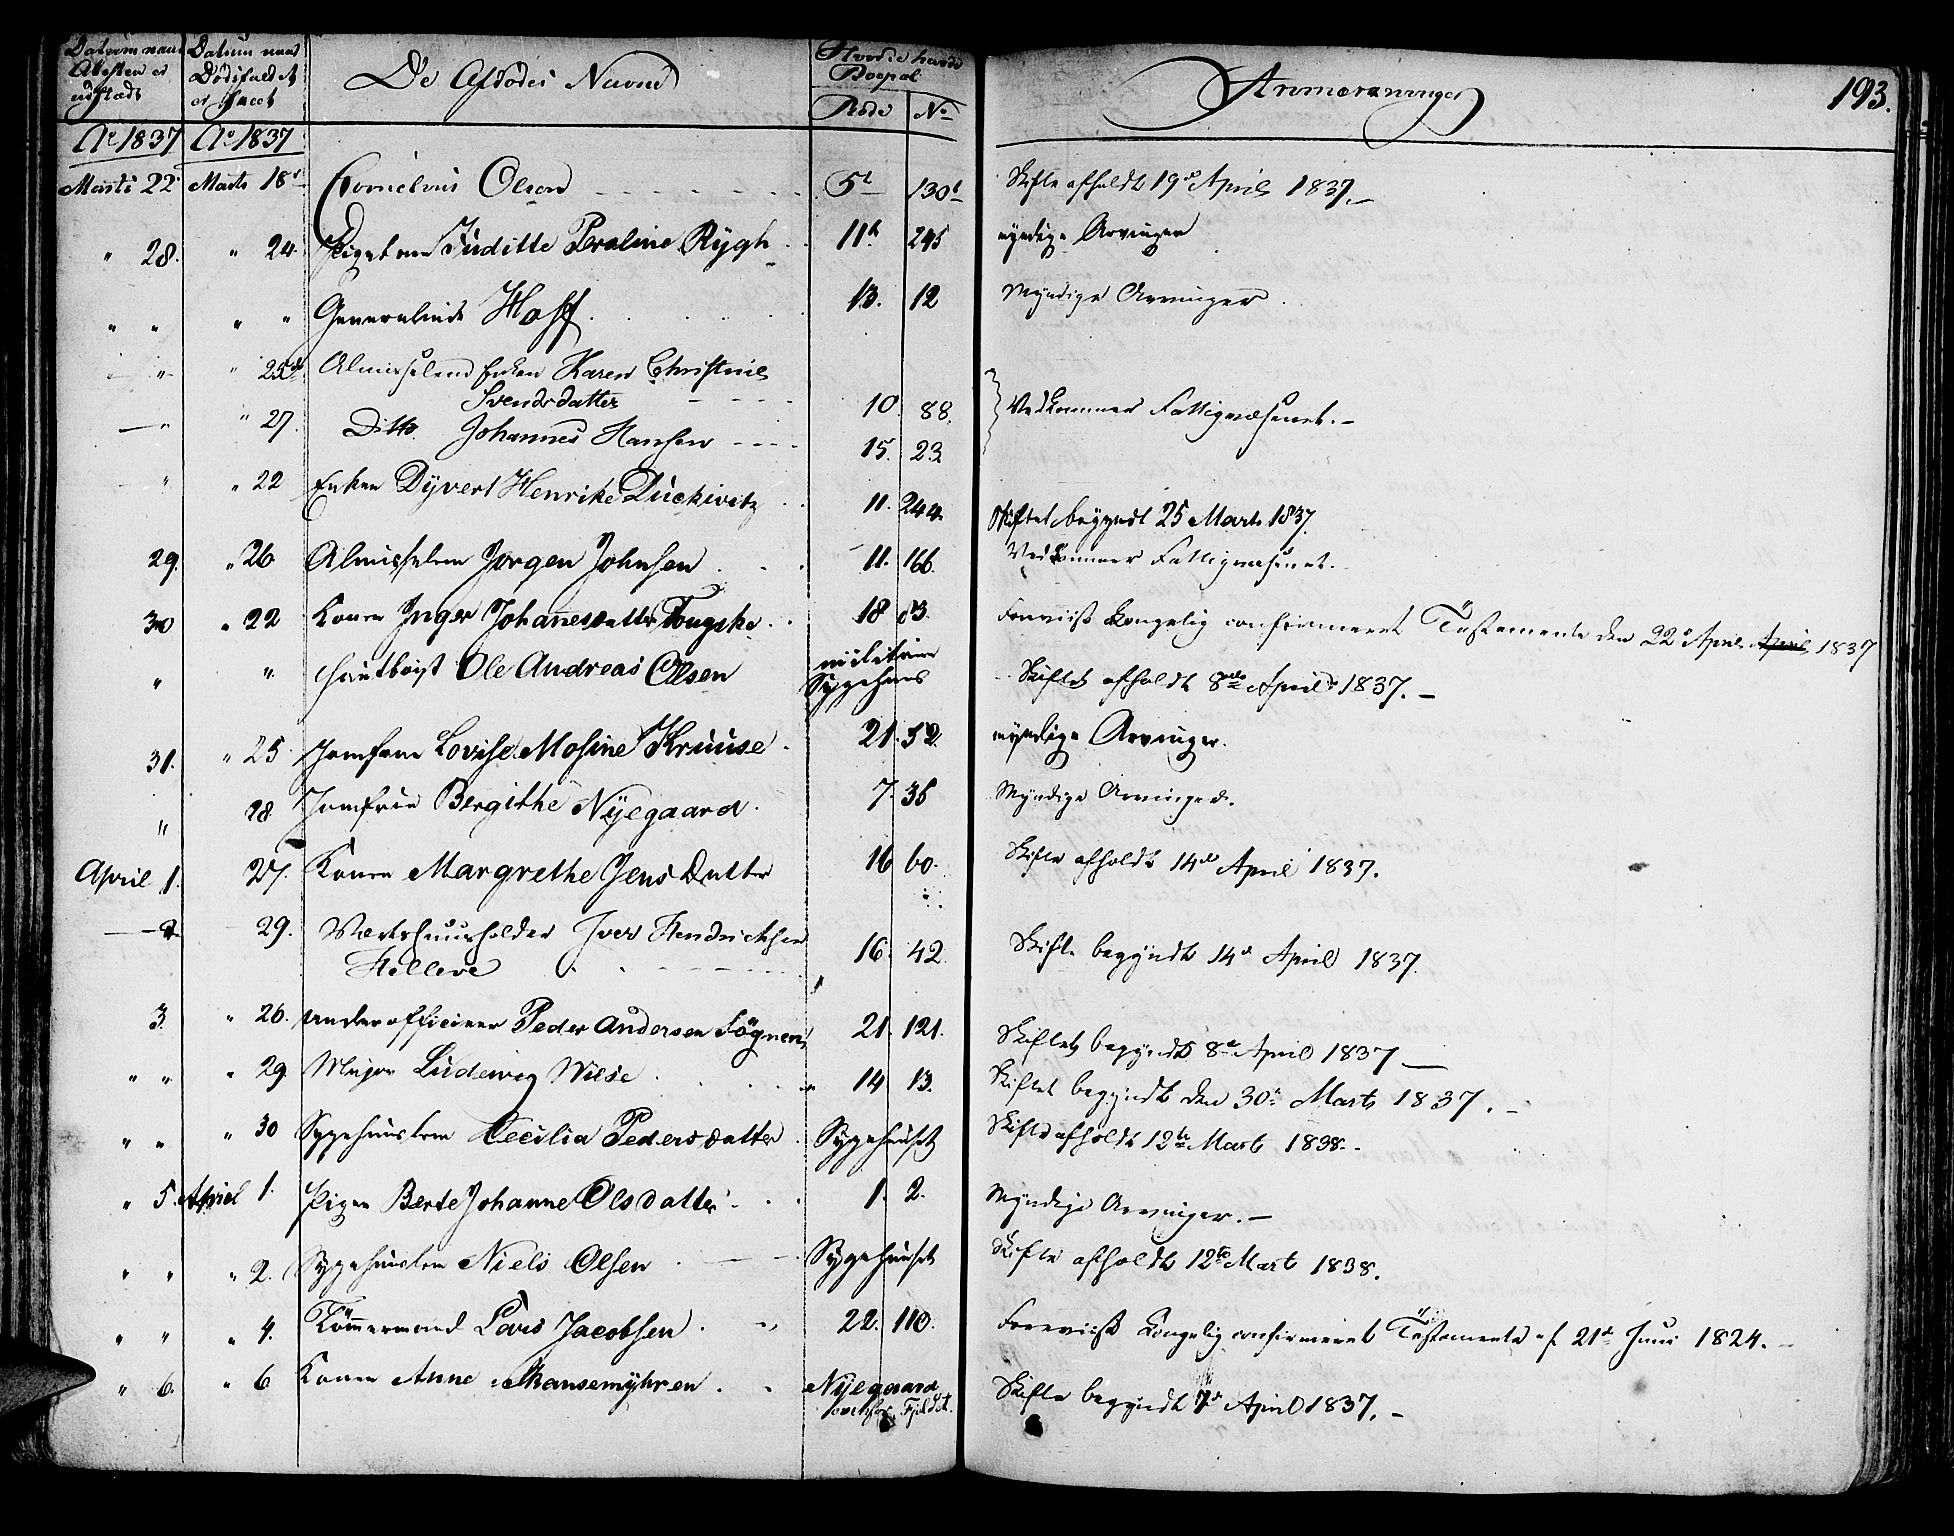 Datum naar Datum naar De Afdødes Navne Hvor de havde Anmærkninger 193.
Attesten er Dødsfaldet Boepæl
udstædt er skeet Rode No
Ao 1837 Ao 1837
Marts 22 Marts 18d Cornelius Olsen 5t 130t Skifte afholdt 19d April 1837.
" 28. " 24. Pigebarn Juditte Peroline Rygh 11t 245 myndige Arvinger
" " " " Generalinde Hoff. 13. 12 Myndige Arvinger.
" " 25de Almisselem Enken Karen Christine
Svendsdatter 10. 88. Vedkommer Fattigvæsenet.
" " 27. Ditto Johannes Hansen 15. 23
" " 22 Enken Dyvert Henrike 11. 244. Skiftet begyndt 25 Marts 1837.
29. " 26 Almisselem Jørgen Johnsen 11. 166. Vedkommer Fattigvæsenet.
30 " 22 Konen Inger Johannesdatter 18 83. Foreviist Kongelig confirmeret Testamente den 22d April April 1837
" " Hautboist Ole Andreas Olsen militaire Sygehuus Skiftet afholdt 8de April 1837.
31. " 25 Jomfrue Lovise Mosine Kruuse 21. 52. myndige Arvinger.
" 28. Jomfrue Bergithe Nyegaard. 7. 36 Myndige Arvinger.
April 1. 27. Konen Margrethe Jens Datter 16 60. Skifte afholdt 14de April 1837.
29. Værtshuusholder Iver Hendrichsen
Helleve 16. 42. Skifte begyndt 14d April 1837.
3. " 26. underofficieer Peder Andersen Sögnen 21. 121. Skiftet begyndt 8d April 1837
" " " 29. Major Ludewig Wilse 14. 13. Skiftet begyndt den 30t Marts 1837.
" " " 30 Sygehuuslem Cecilia Pedersdatter Sygehuset Skifte afholdt 12te Marts 1838.
" 5. April 1. Pigen Berte Johanne Olsdatter 1. 2. Myndige Arvinger.
" " " 2. Sygehuuslem Niels Olsen Sygehuset Skifte afholdt 12te Mart 1838.
" " " 4. Tömmermand Lars Jacobsen 22. 110. Foreviist Kongelig confirmeret Testamente af 21d Juni 1824.
" 6. " 6 Konen Anne Mansemyhren Nyegaard Skifte begyndt 7d April 1837.
ovenfor Fjeldet.